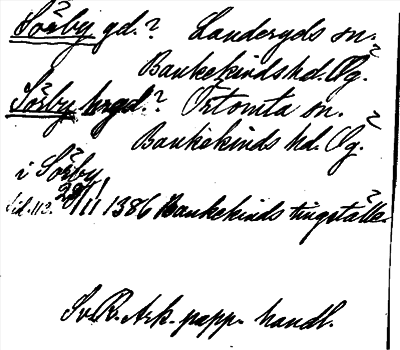 Sörby gd.? Landeryds sn.
Bankekinds hd. Ög.
Sörby hrgd.? Örtomta sn.
Bankekinds hd. Ög.
i Sörby
Sid. 113. 29/11 1386 Bankekinds tingställe.
Sv. R. Ark. papp. handl.